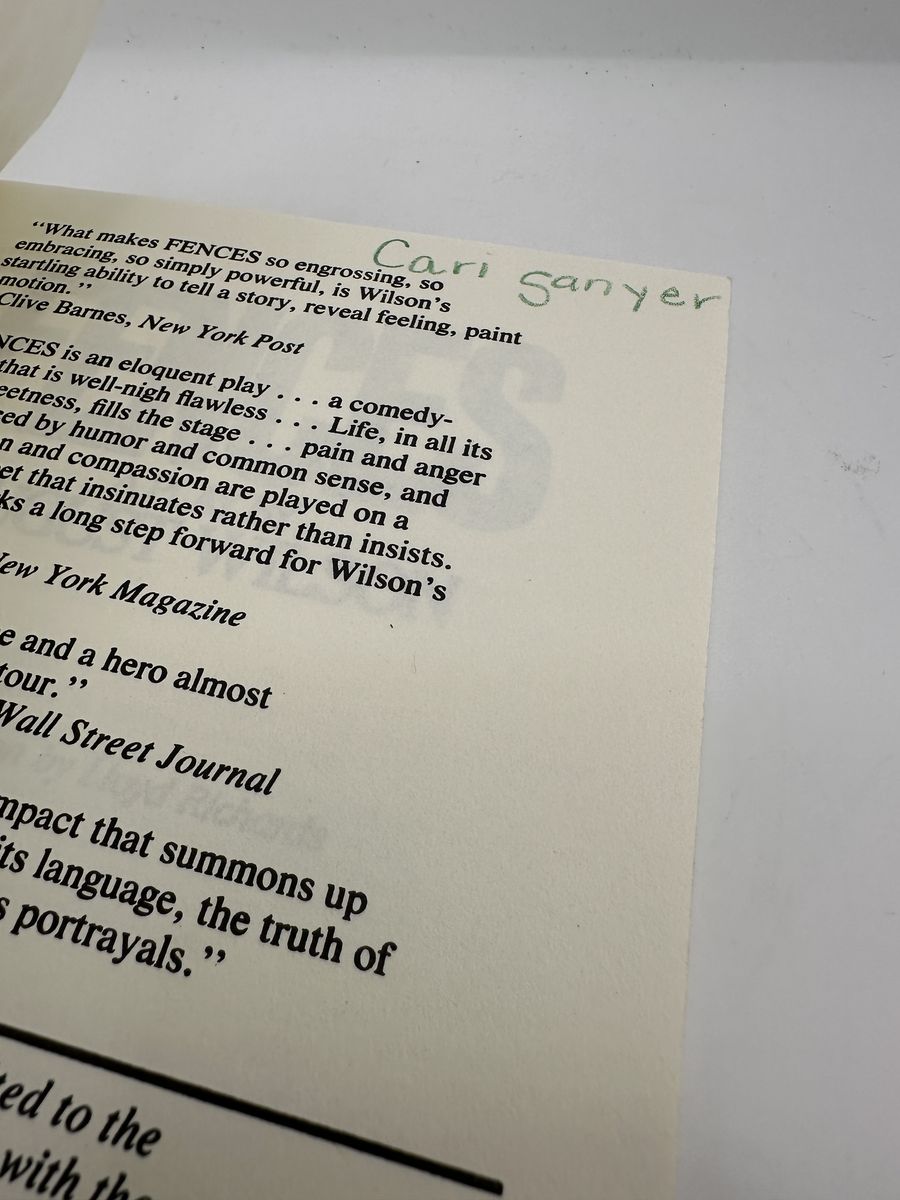 Cari Sanyer
“What makes FENCES so engrossing, so
embracing, so simply powerful, is Wilson’s
startling ability to tell a story, reveal feeling, paint
motion.”
Clive Barnes, New York Post
NCES is an eloquent play . . . a comedy-
that is well-nigh flawless . . . Life, in all its
eetness, fills the stage . . . pain and anger
ed by humor and common sense, and
n and compassion are played on a
et that insinuates rather than insists.
ks a long step forward for Wilson’s
New York Magazine
e and a hero almost
tour.”
Wall Street Journal
mpact that summons up
its language, the truth of
s portrayals.”
ted to the
with the